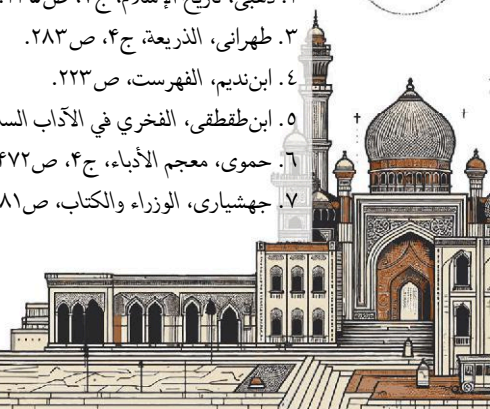 ۳. طهرانی، الذریعة، ج۴، ص۲۸۳.
٤. ابن‌ندیم، الفهرست، ص۲۲۳.
۵. ابن‌طقطقی، الفخري في الآداب
۶. حموی، معجم الأدباء، ج۴، ص۴۷۲
۷. جهشیاری، الوزراء والکتاب، ص